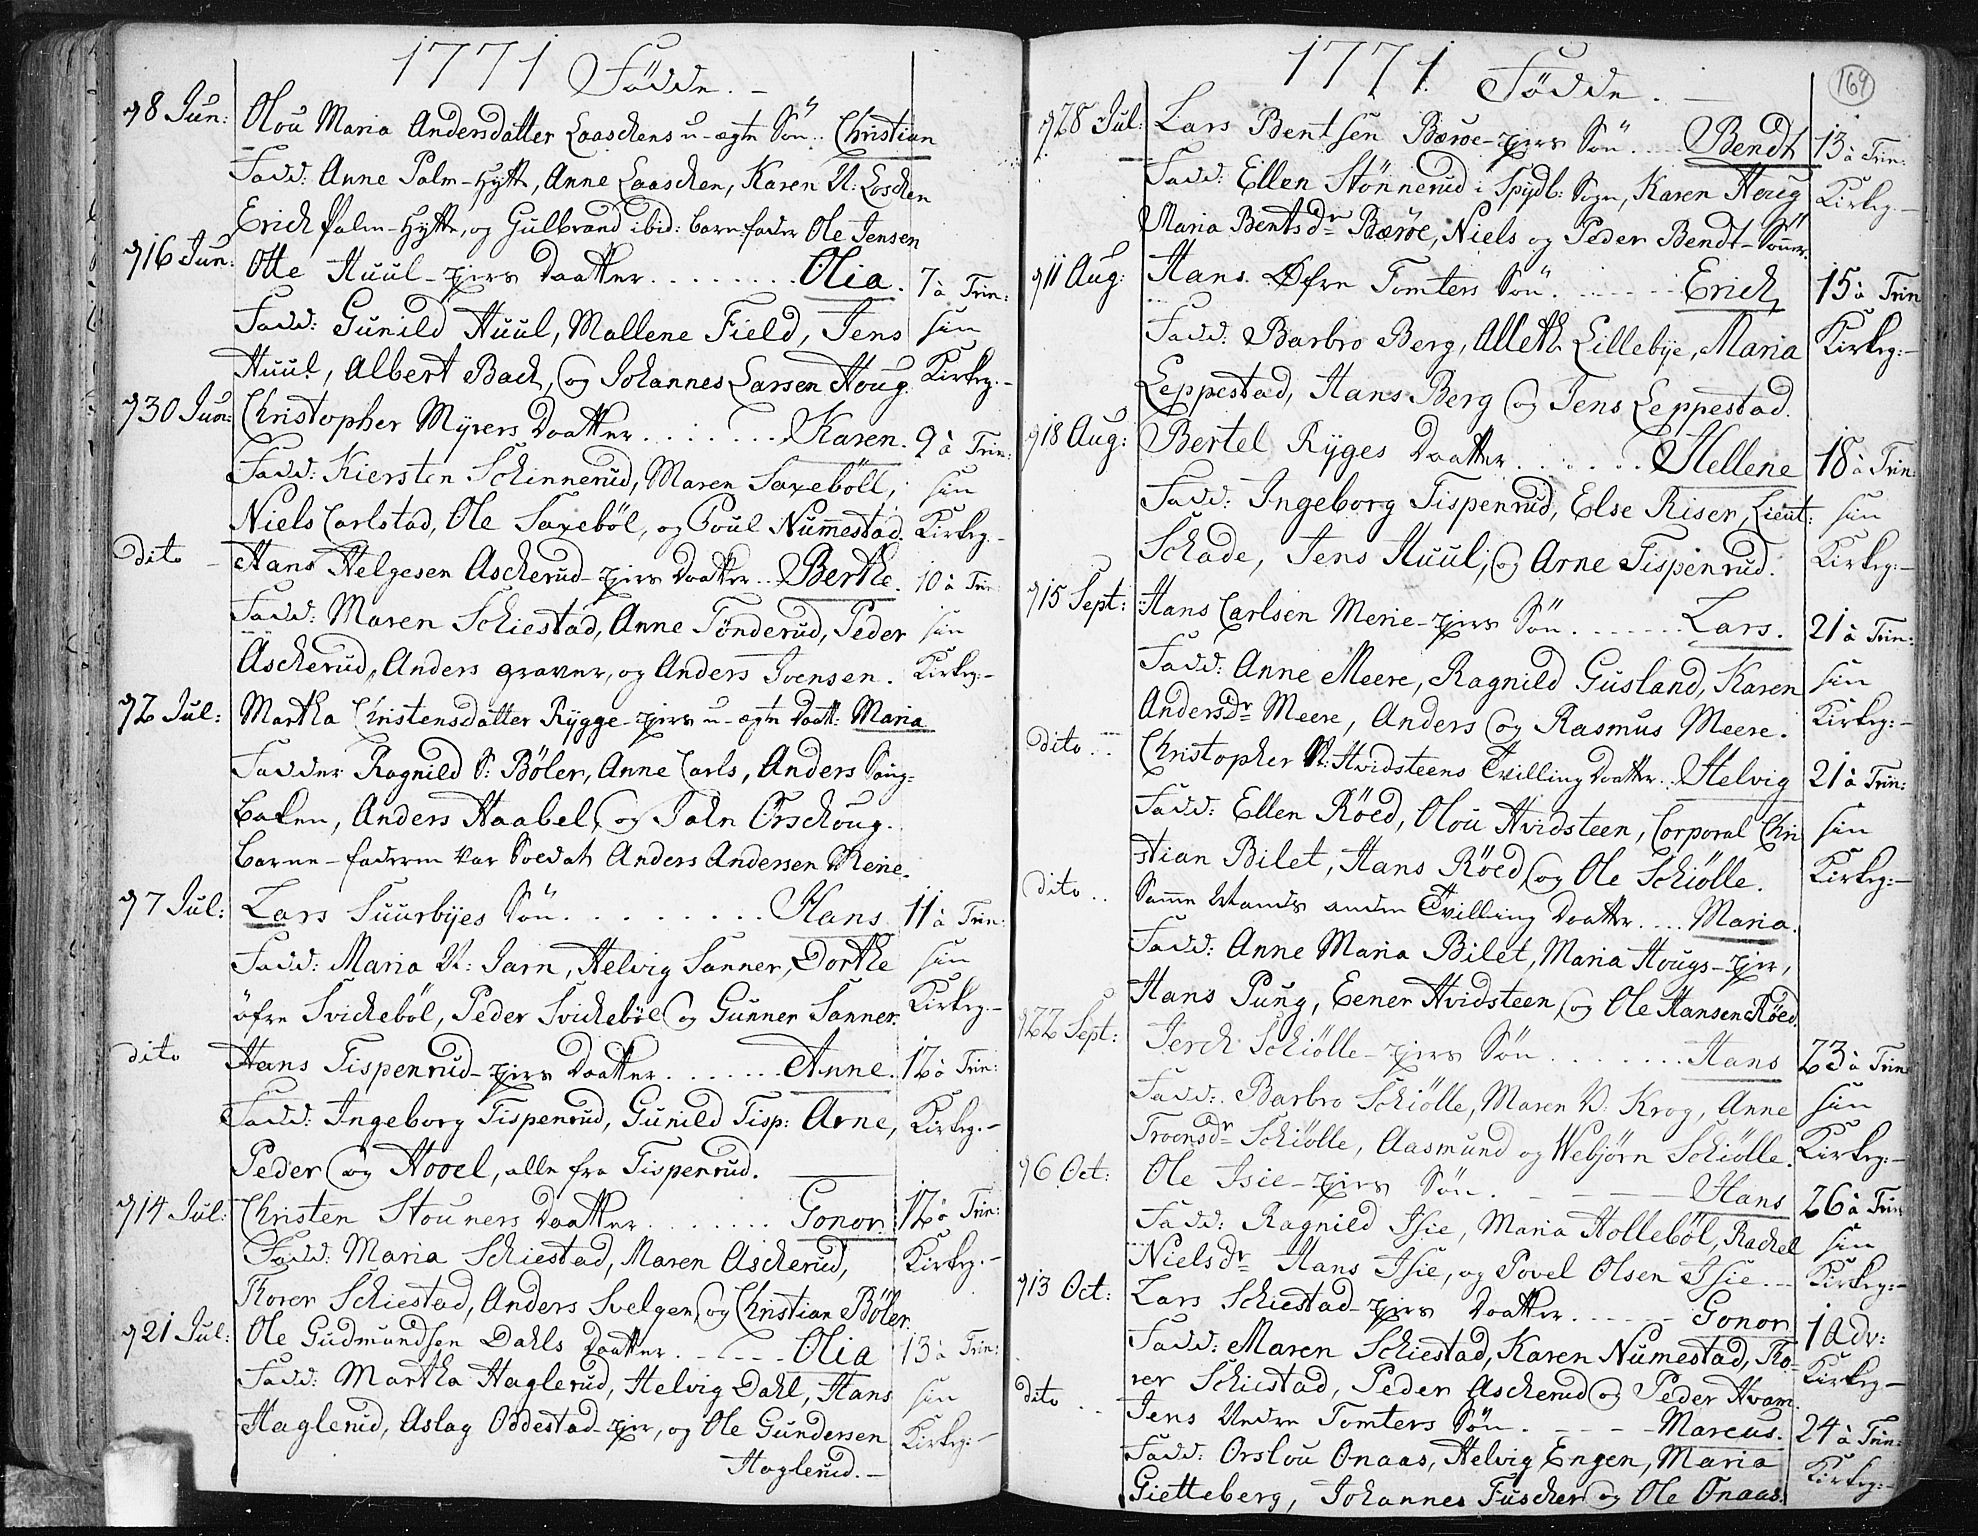 1771 Födde. –
98 Jun: Olou Maria Andersdatter Laaschens u-ægte Sön: Christian
Fadd: Anne Palm-Hytt, Anne Laaschen, Karen N: Loschen
Erich Palm-Hytte, og Gulbrand ibid: barne-fader Ole Jensen
916 Jun: Otte Huul-ejers Daatter........ Olia. 7 à Trin:
Fadd: Gunild Huul, Mallene Field, Jens sin
Huul, Albert Bach, og Johannes Larsen Houg. Kirkeg:–
930 Jun: Christopher Myrers Daatter....... Karen. 9 à Trin:
Fadd: Kiersten Schinnerud, Maren Saxeböll, sin
Niels Carlstad, Ole Saxeböl, og Poul Nummestad. Kirkeg:–
dito – Hans Helgesen Ascherud-ejers Daatter.. Berthe. 10 à Trin
Fadd: Maren Schiestad, Anne Tönderud, Peder sin
Ascherud, Anders graver, og Anders Ivensen. Kirkeg:–
92 Jul: Martha Christensdatter Rygge-ejers u-ægte Daatt: Maria
Fadder Ragnild S: Böler, Anne Carls, Anders Saug-
baken, Anders Haabel, og Joln Orschoug.
barne-faderen var Soldat Anders Andersen Merie.
97 Jul: Lars Suurbyes Sön......... Hans 11 à Trin:
Fadd: Maria N: Jarn, Helvig Sanner, Dorthe sin
öfre Svicheböl, Peder Svicheböl og Gunner Sanner. Kirkeg:–
dito Hans Tispenrud-ejers Daatter....... Anne. 12 à Trin:
Fadd: Ingeborg Tispenrud, Gunild Tisp: Arne, Kirkeg:–
Peder og Hovel, alle fra Tispenrud.
914 Jul: Christen Stouners Daatter....... Gonor. 12 à Trin:
Fadd: Maria Schiestad, Maren Ascherud, Kirkeg:–
Thorer Schiestad, Anders Svelgen, og Christian Böler.
921 Jul: Ole Gudmundsen Dahls Daatter...... Olia 13 à Trin:
Fadd: Martha Haglerud, Helvig Dahl, Hans sin
Haglerud, Aslag Oddestad-ejer, og Ole Gundersen Kirkeg:–
Haglerud.–
1771. Födde. –
164
928 Jul: Lars Bentsen Bæroe-ejers Sön.... Bendt 13 à Trin:
Fadd: Ellen Stönnerud i Spydb: Sogn, Karen Houg Kirkeg:–
Maria Bentsdr Bæröe, Niels og Peder Bendt-Sönner.
911 Aug: Hans Øfre Tomters Sön....... Erich 15 à Trin
Fadd: Barbro Berg, Alleth Lillebye, Maria Kirkeg:–
Leppestad, Hans Berg og Jens Leppestad.
918 Aug: Bertel Ryges Daatter...... Hellene 18 à Trin:
Fadd: Ingeborg Tispenrud, Else Riser, Lieut: sin
Schade, Jens Huul, og Arne Tispenrud. Kirkeg:–
915 Sept: Hans Carlsen Merie-ejers Sön....... Lars. 21 à Trin:
Fadd: Anne Meere, Ragnild Gusland, Karen sin
Andersdr Meere, Anders og Rasmus Meere. Kirkeg:–
dito.. Christopher N: Hvidsteens Tvilling Daatter.. Helvig 21 à Trin:
Fadd: Ellen Röed, Olou Hvidsteen, Corporal Chri sin
stian Bilet, Hans Röed, og Ole Schiölle. Kirkeg:–
dito.. Samme Mands anden Tvilling Daatter.... Maria.
Fadd: Anne Maria Bilet, Maria Hougs-ejer,
Hans Pung, Eener Hvidsteen, og Ole Hansen Röed.
922 Sept: Jerch Schiölle-ejers Sön....... Hans 23 à Trin
Fadd: Barbro Schiölle, Maren N: Krog, Anne sin
Troensdr Schiölle, Aasmund og Webjörn Schiölle. Kirkeg:–
96 Oct: Ole Isie-ejers Sön. – – – Hans 26 à Trin
Fadd: Ragnild Isie, Maria Holleböl, Rachel sin
Nielsdr Hans Isie, og Povel Olsen Isie.– Kirkeg:–
913 Oct: Lars Schiestad-ejers Daatter...... Gonor 1 Adv:
Fadd: Maren Schiestad, Karen Numestad, Tho- Kirkeg:–
rer Schiestad, Peder Ascherud og Peder Hvam.
dito.. Jens Nedre Tomters Sön. – – – Marcus. 24 à Trin:
Fadd: Orslou Onaas, Helvig Engen, Maria Kirkeg:–
Gietteberg, Johannes Fuscher og Ole Onaas.